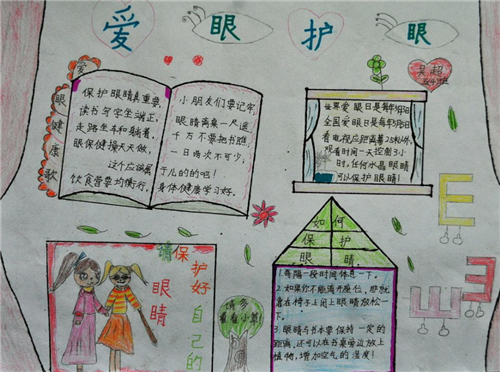 爱眼护眼
吴超
爱眼健康歌
保护眼睛真重要,
读书写字坐端正,
走路坐车和躺着,
眼保健操天天做,
这个应该
饮食营养要均衡行,
小朋友们要记牢,
眼睛离桌一尺远
千万不要把书瞧,
一日两次不可少,
于儿的的吧!
身体健康学习好.
世界爱眼日是每年
全国爱眼日是每年
看电视应距离着2.5米以外,
观看时间一天控制3小
时,任何水晶眼睛
可以保护眼睛!
请保护好自己的
眼睛
请多
看看小草
如何
保护
眼睛
1.每隔一段时间休息一下。
2.如果你不能离开座位,那就
靠在椅子上闭上眼睛放松一
下,
3.眼睛与书本要保持一定的
距离,还可以在书桌旁边放上
植物,增加空气的湿度!
E
E
E